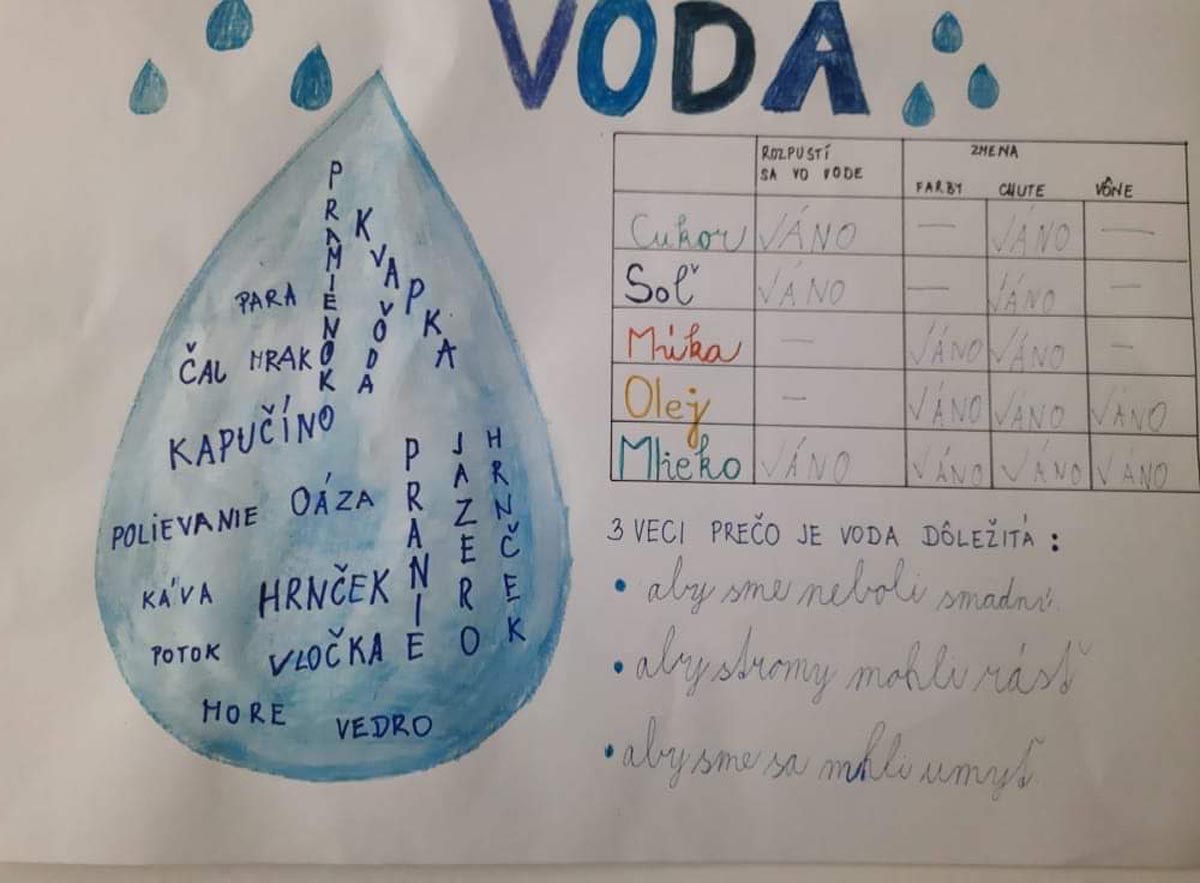 VODA
PRAMIENOK
KVAPKA
VÔDA
PARA
ČAL
HRAK
KAPUČÍNO
PRANIE
JAZERO
HRNČEK
OÁZA
POLIEVANIE
KÁVA
HRNČEK
POTOK
VLOČKA
MORE
VEDRO
ROZPUSTÍ ZMENA
SA VO VODE FARBY CHUTE VÔNE
Cukor ÁNO — ÁNO —
Soľ ÁNO — ÁNO —
Múka — ÁNO ÁNO —
Olej — ÁNO ÁNO ÁNO
Mlieko ÁNO ÁNO ÁNO ÁNO
3 VECI PREČO JE VODA DÔLEŽITÁ :
• aby sme neboli smädní.
• aby stromy mohli rásť
• aby sme sa mohli umyť